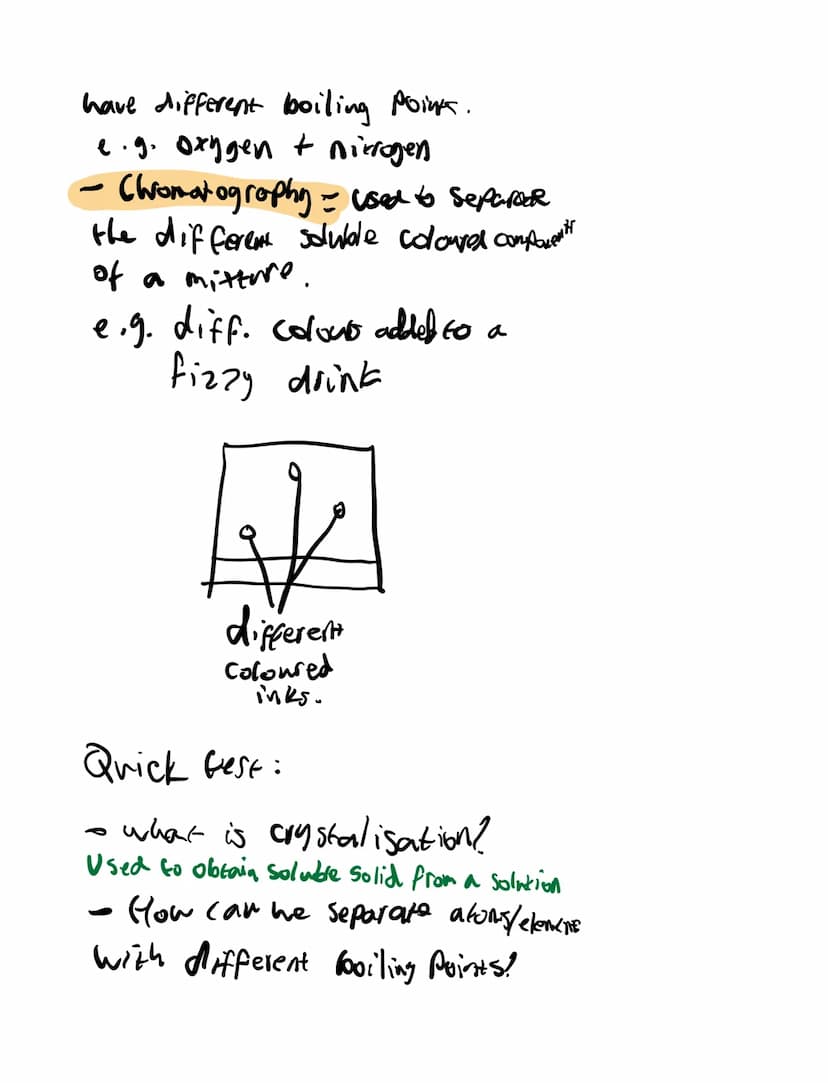 have different boiling points.
e.g. oxygen + nitrogen
- Chromatography = used to separate
the different soluble coloured components
of a mixture.
e.g. diff. colours added to a
fizzy drink
different
coloured
inks.
Quick test:
- what is crystalisation?
Used to obtain soluble solid from a solution
- How can we separate atoms/elements
with different boiling points?